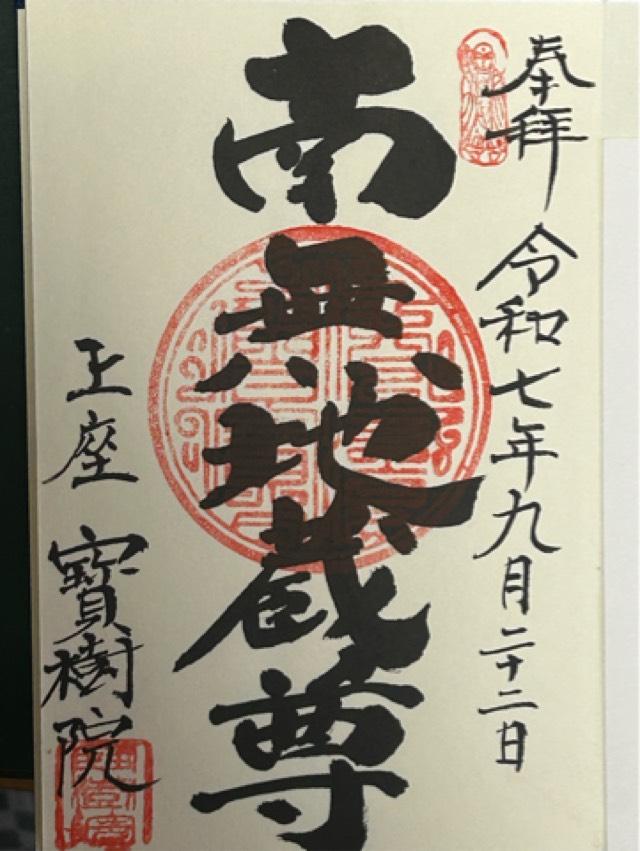 奉拝 令和七年九月二十二日
南無地蔵尊
玉座 寳樹院